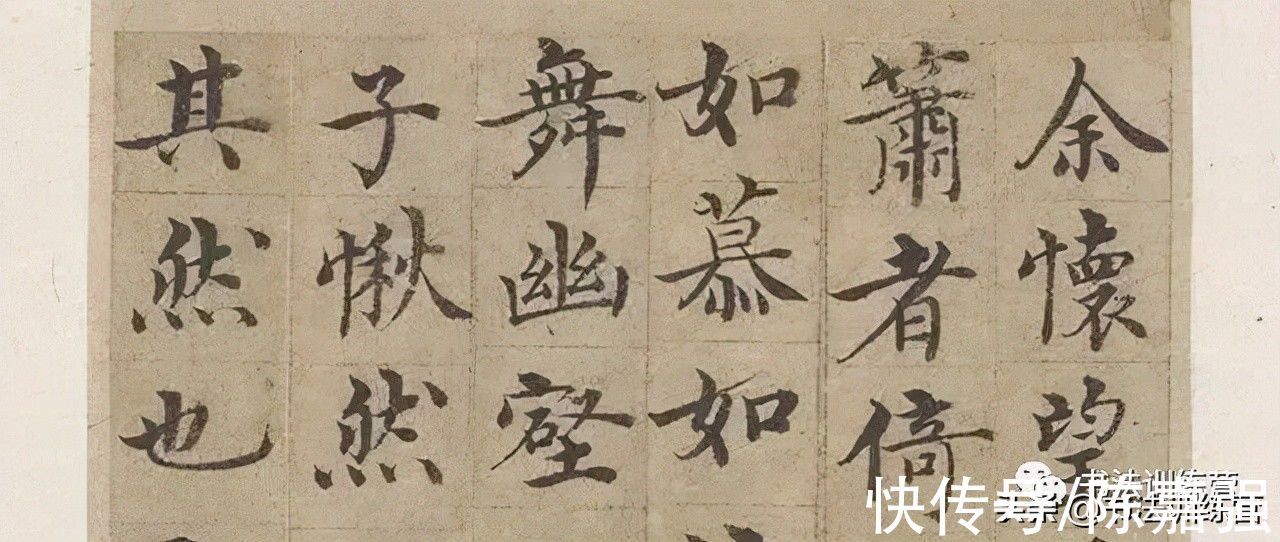 余懷望
簫者倚
如慕如
舞幽壑
子愀然
其然也
快传号/陈嘉强